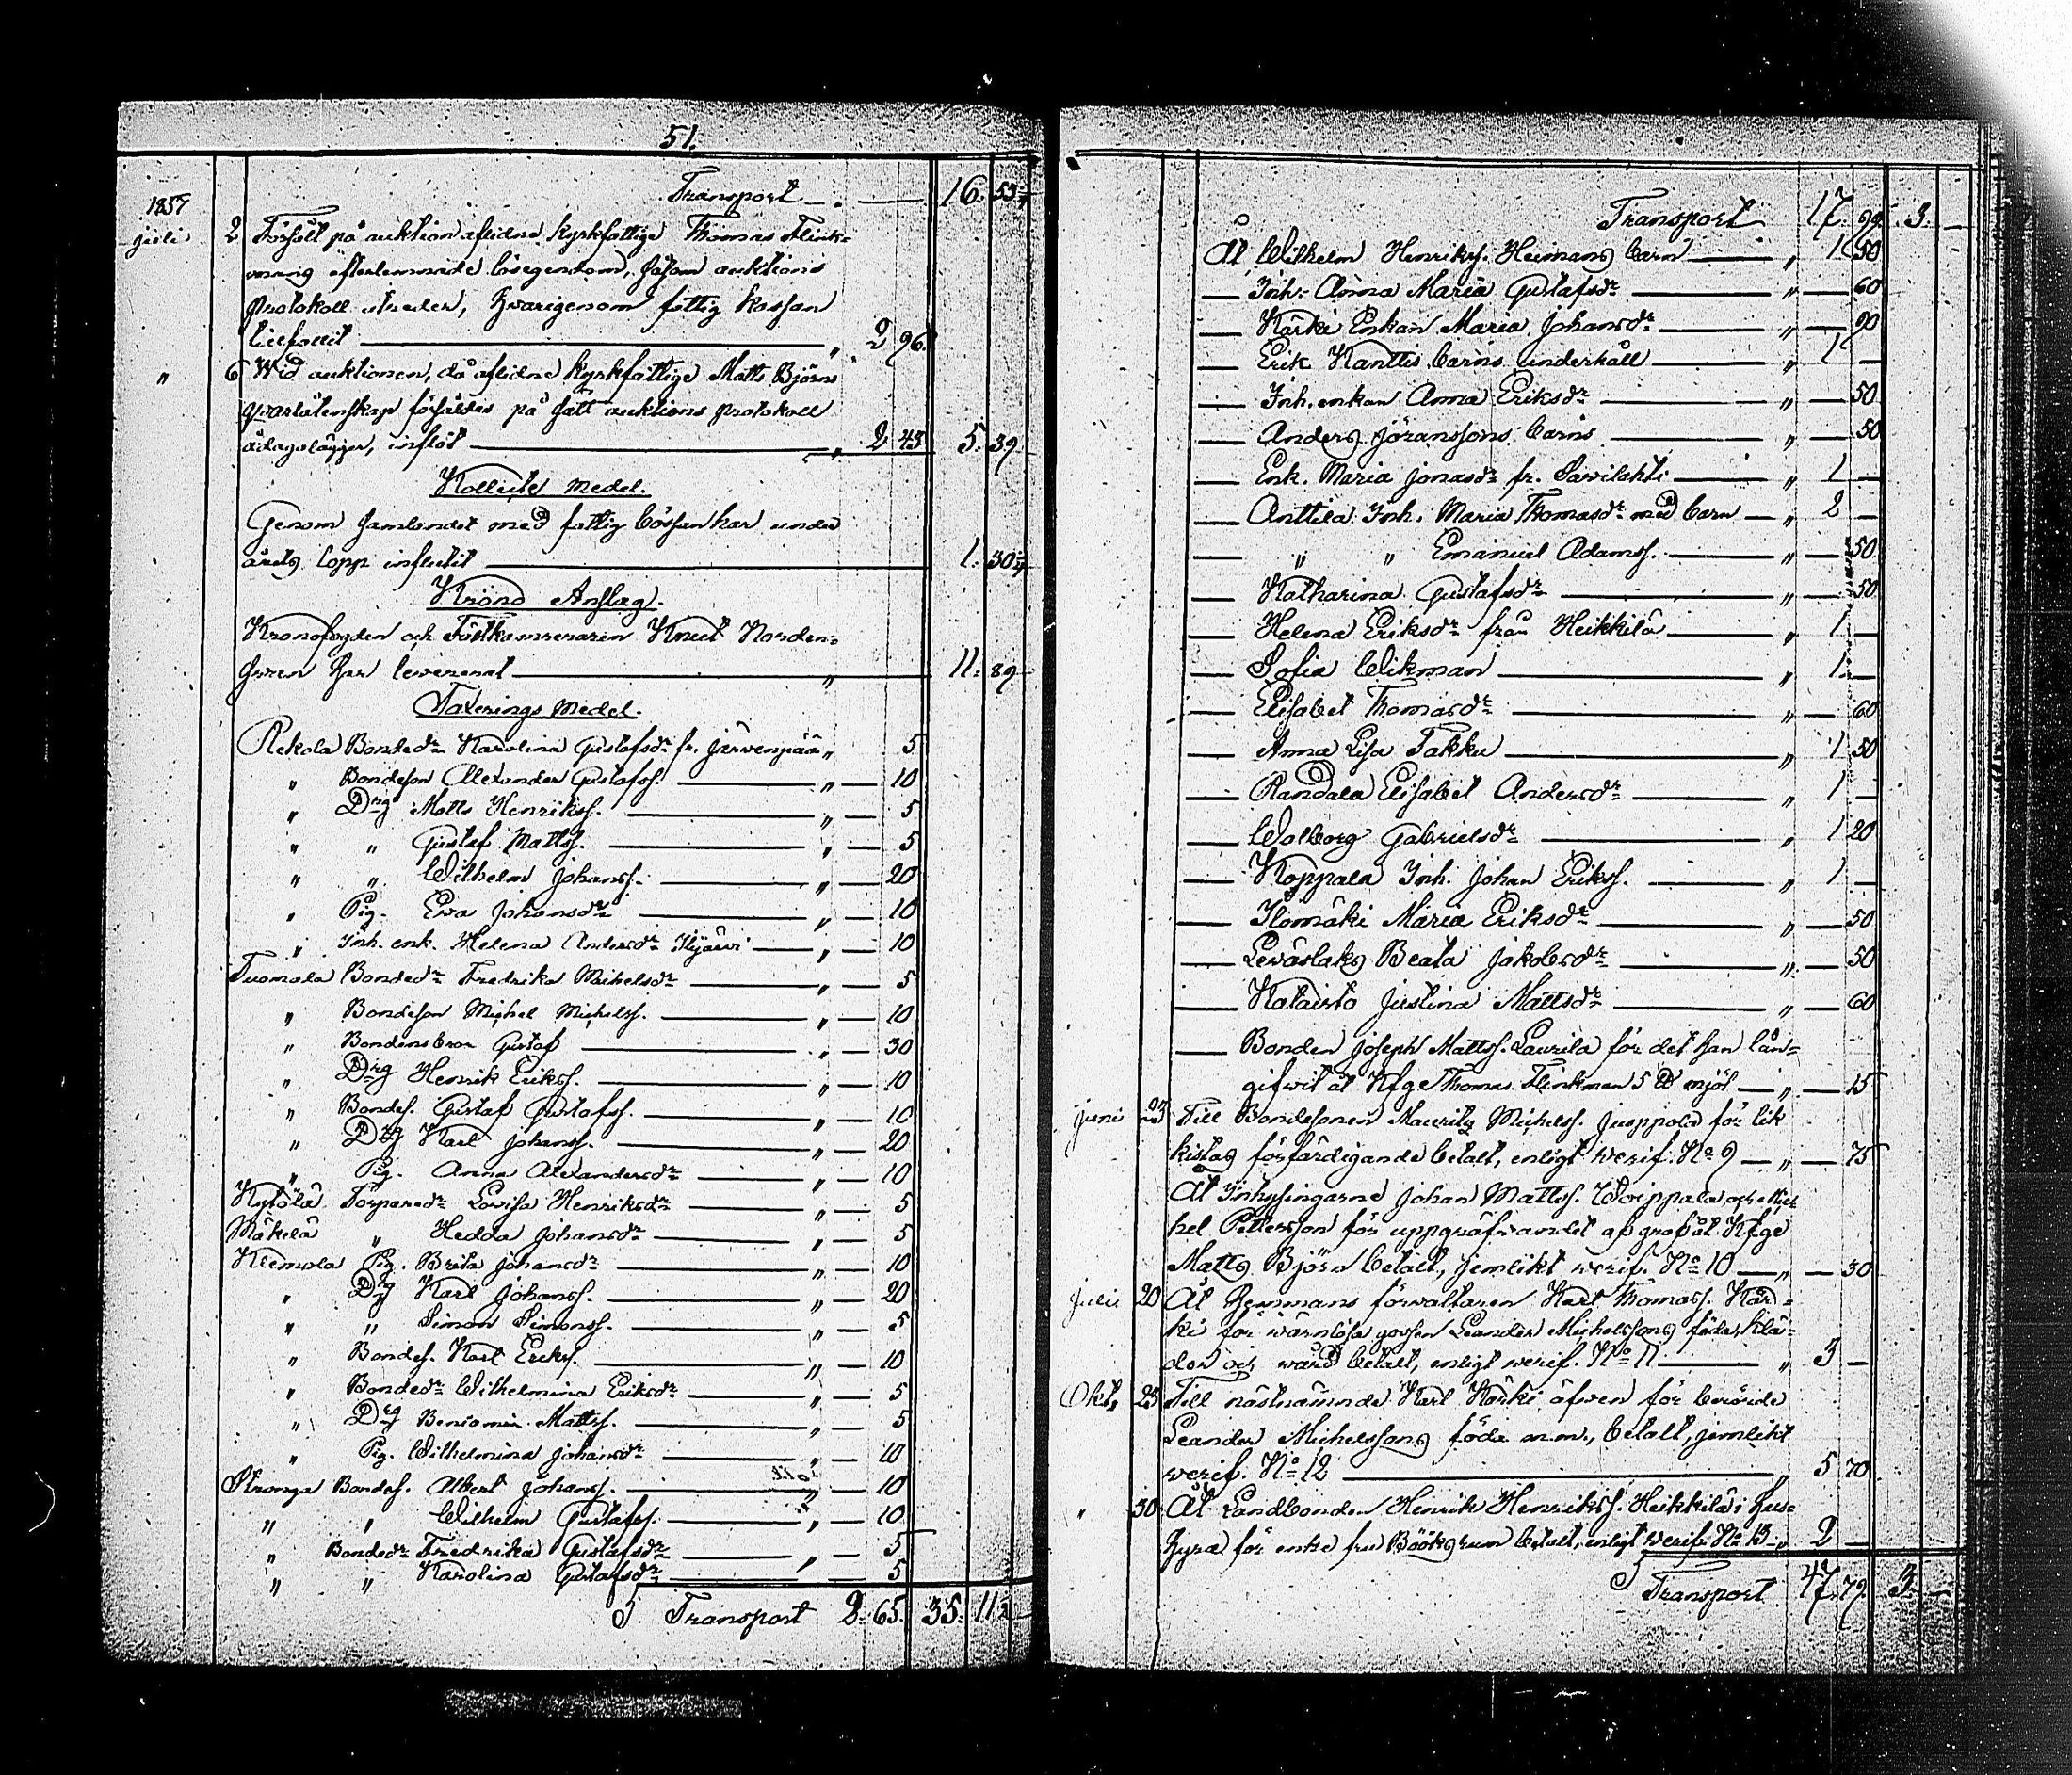 51.
Transport 16. 53
1857
juli 2 Försålt på auktion aflidne kyrkfattige Thomas Flink-
manns efterlemnade lösegendom, såsom auktions
protokoll utreder, hvarigenom fattig kassan
tillfallit " 2 96.
" 6 Wid auktionen, då aflidne kyrkfattige Matts Björns
qvarlåtenskap försåldes på sätt auktions protokoll
ådagalägger, inflöt " 2 43 5. 39
Kollekt medel.
Genom samlandet med fattig bössan har under
årets lopp influtit 1. 30
Krono Anslag.
Kronofogden och Fältkamreraren Knut Norden-
swen har levererat " 11. 89
Taxerings medel.
Rekola Bonded:r Karolina Gustafsd:r fr. Järvenpää " 5
" Bondeson Alexander Gustafss. " — 10
" Drg Matts Henrikss. " — 5
" " Gustaf Mattss. " — 5
" " Wilhelm Johanss. " — 20
" Pig. Eva Johansd:r " — 10
" Inh. enk. Helena Andersd:r " — 10
Tuomola Bonded:r Fredrika Michelsd:r " — 5
" Bondeson Michel Michelss. " — 10
" Bondens bror Gustaf " — 30
" Drg Henrik Erikss. " — 10
" Bondes. Gustaf Gustafss. " — 10
" Drg Karl Johanss. " — 20
" Pig. Anna Alexandersd:r " — 10
Kytölä Torpared:r Lovisa Henriksd:r " — 5
Mäkelä " Hedda Johansd:r " — 5
Klemola Pig. Brita Johansd:r " — 10
" Drg Karl Johanss. " — 20
" " Simon Simonss. " — 5
" Bondes. Karl Erikss. " — 10
" Bonded:r Wilhelmina Eriksd:r " — 5
" Drg Benjamin Mattss. " — 5
" Pig. Wilhelmina Johansd:r " — 10
Stranga Bondes. Albert Johanss. " — 10
" " Wilhelm Gustafss. " — 10
" Bonded:r Fredrika Gustafsd:r " — 5
" " Karolina Gustafsd:r — 5
Transport 2. 65. 35. 11
Transport 17. 99. 3. —
Åt Wilhelm Henrikss. Heimans barn " 1 50
— Inh. Anna Maria Gustafsd:r " — 60
— Kärki Enkan Maria Johansd:r " — 90
— Erik Kanttis barns underhåll " 1 —
— Inh. enkan Anna Eriksd:r " — 50
— Anders Jöranssons barns " — 50
— Enk. Maria Jonasd:r fr. Savilahti " 1 —
— Anttila Inh. Maria Thomasd:r med barn " 2 —
— " " Emanuel Adamss. " — 50
— Katharina Gustafsd:r " — 50
— Helena Eriksd:r från Heikkilä " 1 —
— Sofia Wikman " 1 —
— Elisabet Thomasd:r " — 60
— Anna Lisa Takku " 1 50
— Randala Elisabet Andersd:r " 1 —
— Walborg Gabrielsd:r " 1 20
— Koppala Inh. Johan Erikss. " 1 —
— Ilomäki Maria Eriksd:r " — 50
— Leväslaks Beata Jakobsd:r " — 50
— Kotaisto Justina Mattsd:r " — 60
— Bonden Joseph Mattss. Laurila för det han lån-
gifvit åt Kfge Thomas Flinkman 5 ℔ mjöl " — 15
juni Till Bondesonen Mauritz Michelss. Juappola för lik
kistas förfärdigande betalt, enligt verif. No 9 " — 75
Åt Inhysingarne Johan Mattss. Woippala och Mic-
hel Pettersson för uppgräfvandet af graf åt Kfge
Matts Björn betalt, jemlikt verif. No 10 " — 30
Julii 20 Åt Hemmans förvaltaren Karl Thomass. Kär-
ki för värnlösa gossen Leander Michelssons föda, klä-
der och vård betalt, enligt verif. No 11 " 3 —
Oktb. 23 Till nästnämnde Karl Kärki äfven för berörde
Leander Michelssons föda m.m., betalt, jemlikt
verif. No 12 " 5 70
" 30 Åt Landbonden Henrik Henrikss. Heikkilä i hus-
hyra för enke fru Bööks rum betalt, enligt verif. No 13 " 2 —
Transport 47. 79. 3. —